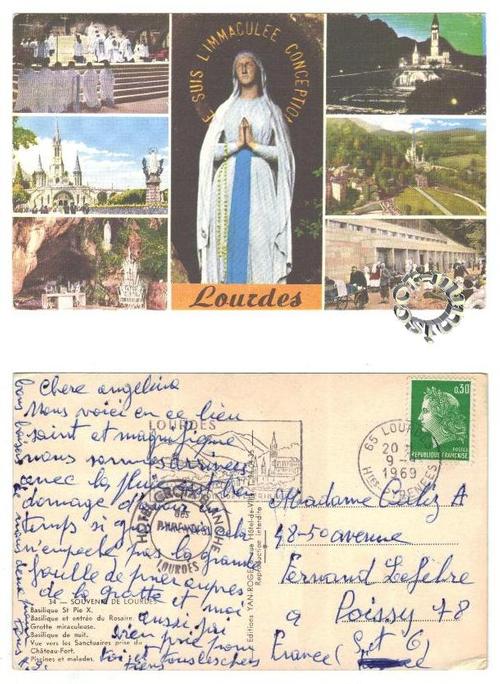 JE SUIS L'IMMACULEE CONCEPTION
Lourdes
Chere angelina
Nous voici en ce lieu
saint et magnifique
nous sommes arrivées
avec la pluie
domage d'avoir un
temps si
n'empeche pas la grande
foulle de prier aupres
de la grotte et moi
aussi j'ai
bien prié pour
toi et tous les chers
tiens
LOURDES
HOTEL CROIX BLANCHE
LOURDES
65 LOURDES
20
9-
1969
Htes PYRENEES
0,30
POSTES
REPUBLIQUE FRANÇAISE
Madame Celiz A
48-50 avenue
Fernand Lefebre
a Poissy 78
France (S et O)
34 — SOUVENIR DE LOURDES
Basilique St Pie X.
Basilique et entrée du Rosaire.
Grotte miraculeuse.
Basilique de nuit.
Vue vers les Sanctuaires prise du
Château-Fort.
Piscines et malades.
Editions YAN
Reproduction interdite